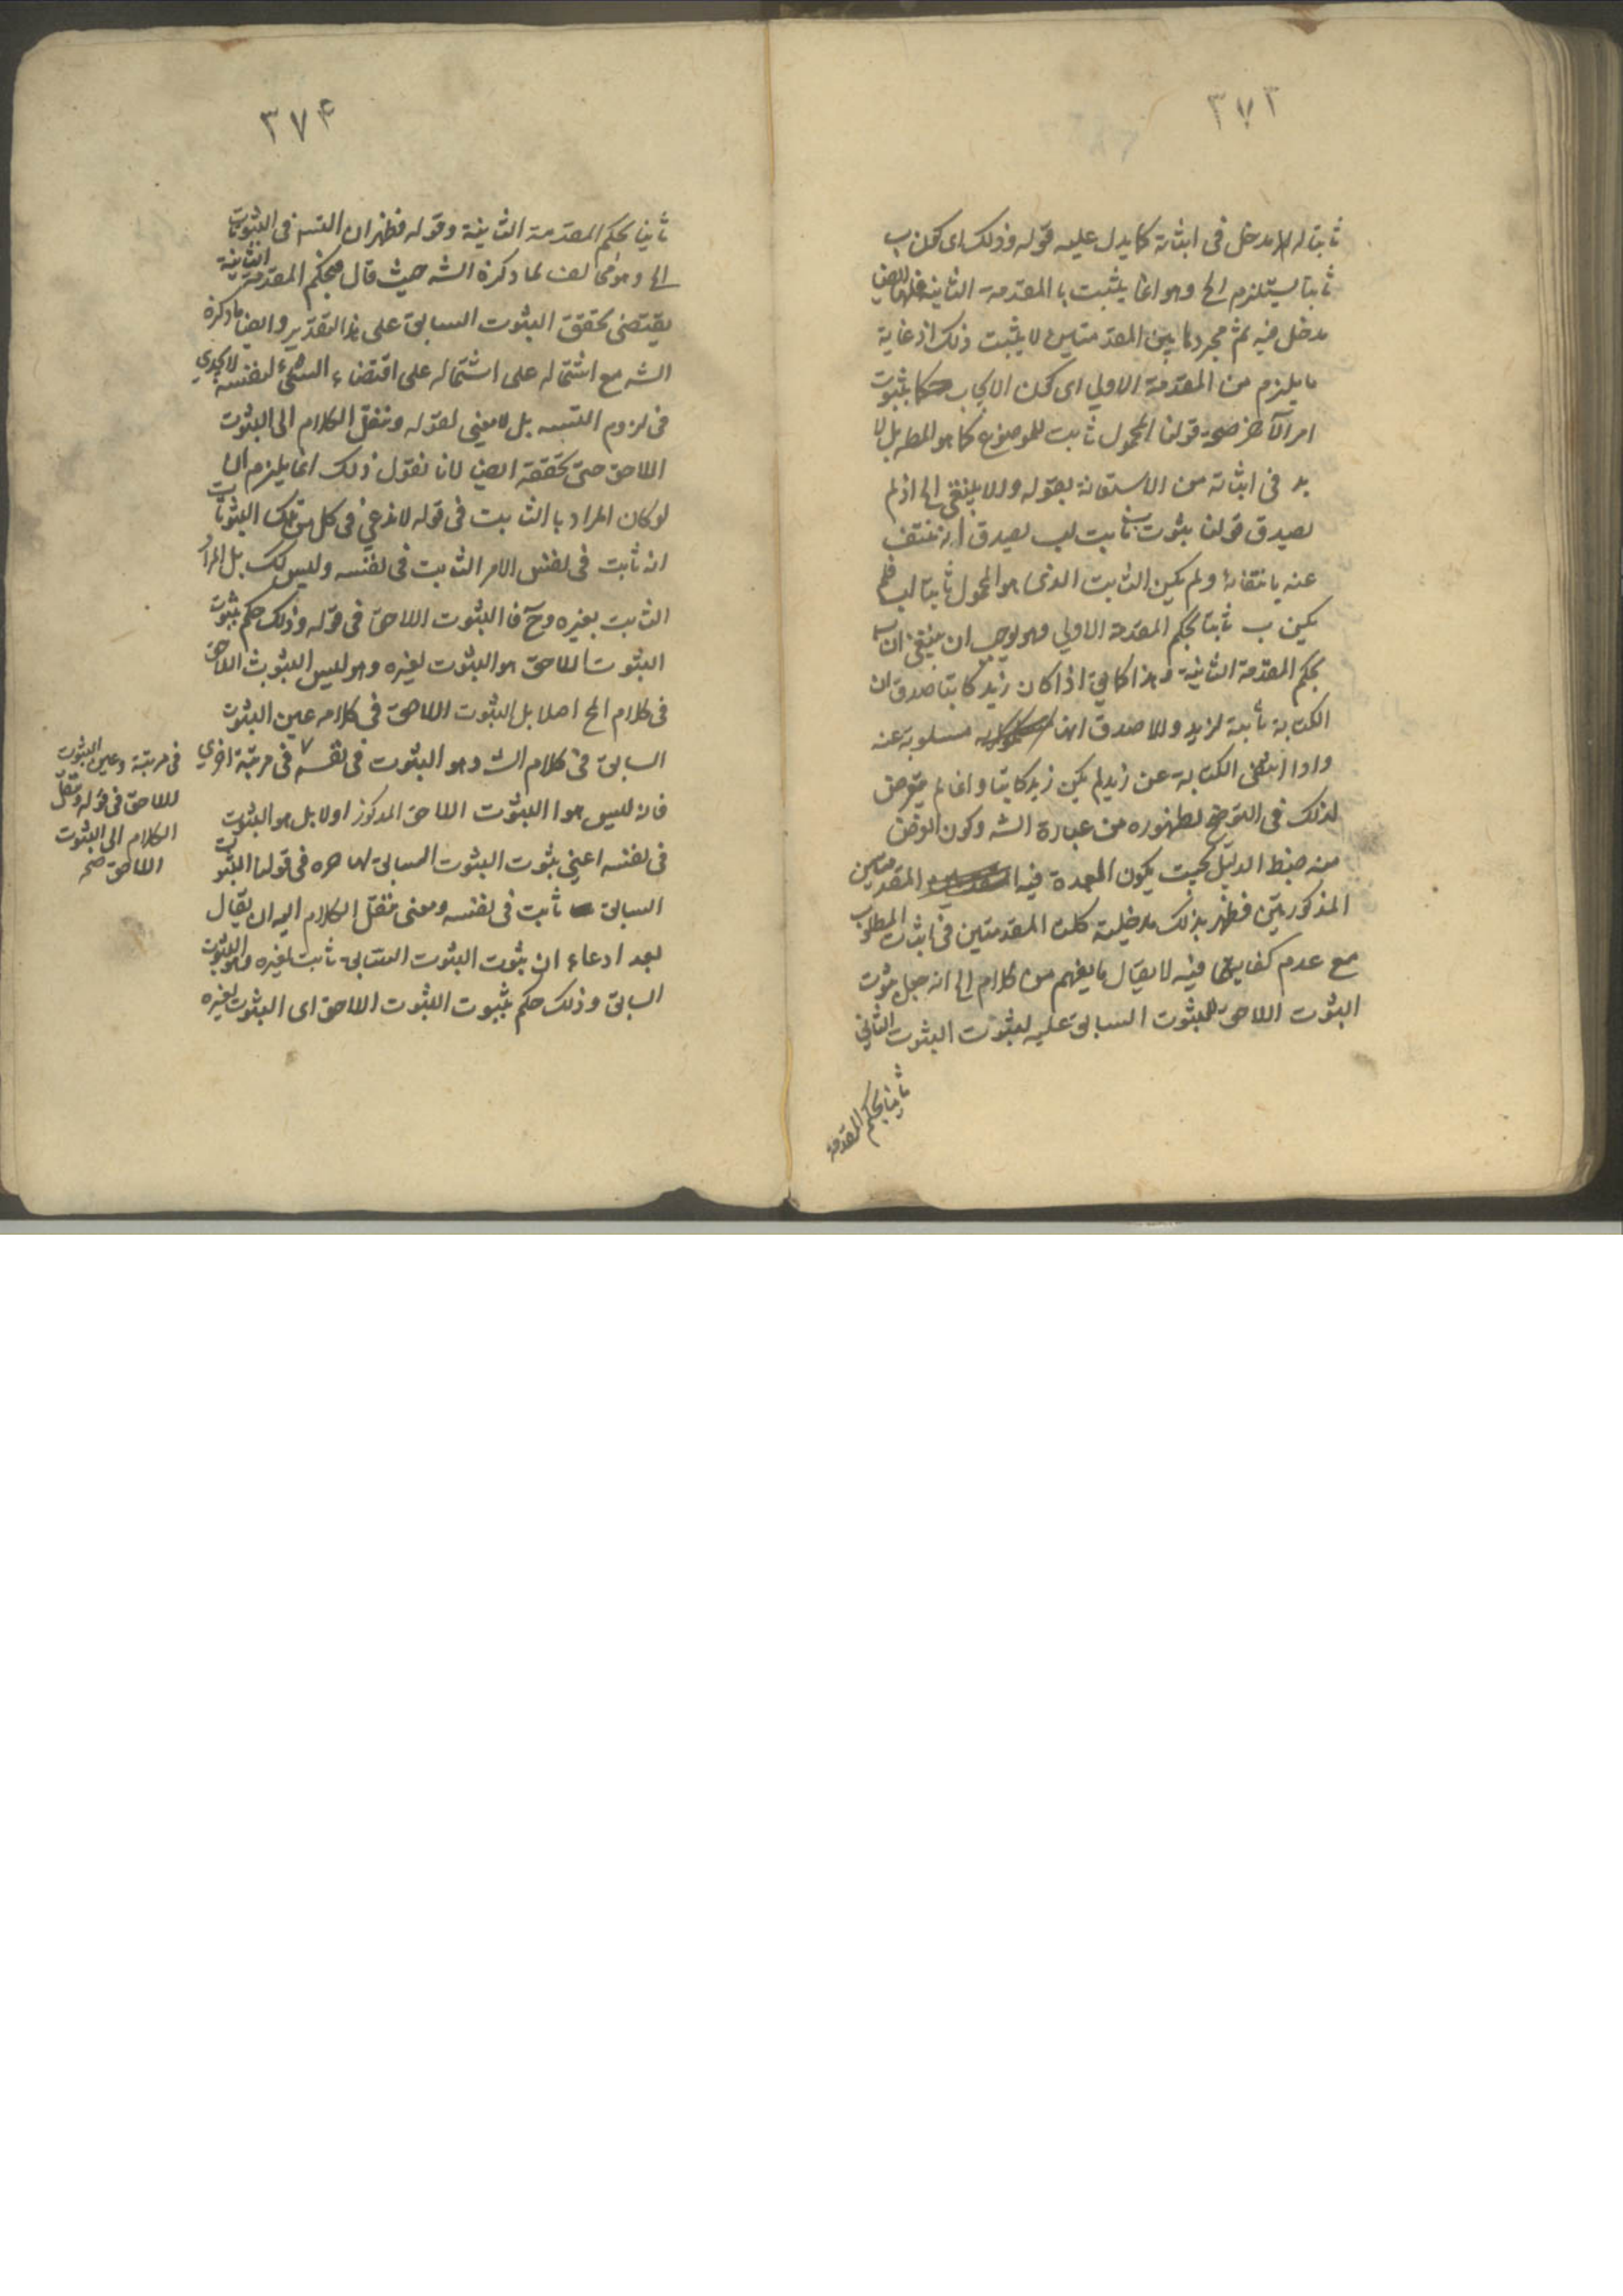 ٣٧٣
ثابتا له لها مدخل فى اثباته كما يدل عليه قوله وذلك اى كون ب
ثابتا يستلزم الخ وهو انما يثبت بالمقدمة الثانية فلها ايضا
مدخل فيه ثم مجرد هاتين المقدمتين لا يثبت ذلك اذ غاية
ما يلزم من المقدمة الاولي اى كون الايجاب حكما بثبوت
امر لآخر صحة قولنا المحمول ثابت للموضوع كما هو المط بل لا
بد فى اثباته من الاستعانة بقوله والا ينتفى الخ اذ لم
يصدق قولنا ثبوت ب ثابت لب يصدق انه منتف
عنه بانتفائه ولم يكن الثابت الذى هو المحمول ثابتا لب فلم
يكن ب ثابتا بحكم المقدمة الاولي وهو يوجب ان ينتفى ان ب
بحكم المقدمة الثانية وهذا كما فى اذا كان زيد كاتبا صدق ان
الكتابة ثابتة لزيد والا صدق انها مسلوبة عنه
واذا انتفى الكتابة عن زيد لم يكن زيد كاتبا وانما لم يتعرض
لذلك فى التوضيح لظهوره من عبارة الشه وكون الغرض
منه ضبط الدليل بحيث يكون العمدة فيه المقدمتين
المذكورتين فظهر بذلك مدخلية كلتا المقدمتين فى اثبات المطلوب
مع عدم كفايتهما فيه لا يقال ما يفهم من كلام الخ انه جعل ثبوت
الثبوت اللاحق للثبوت السابق عليه لثبوت الثبوت الثانى
ثانيا بحكم المقدمة
٣٧۴
ثانيا بحكم المقدمة الثانية وقوله فظهر ان التسه فى الثبوتات
الخ وهو مخالف لما ذكره الشه حيث قال فبحكم المقدمة الثانية
يقتضى تحقق الثبوت السابق على هذا التقدير وايضا ما ذكره
الشه مع اشتماله على اشتماله على اقتضاء الشئ لنفسه لا يجدي
فى لزوم التسه بل لا معنى لقوله وننقل الكلام الى الثبوت
اللاحق حتى تحققه ايضا لانا نقول ذلك انما يلزم
لو كان المراد بالثابت فى قوله لا ندعي فى كل من تلك الثبوتات
انه ثابت فى نفس الامر الثابت فى نفسه وليس كك بل المراد
الثابت بغيره وح فالثبوت اللاحق فى قوله وذلك حكم بثبوت
الثبوت اللاحق هو الثبوت لغيره وهو ليس الثبوت اللاحق
فى كلام الخ اصلا بل الثبوت اللاحق فى كلامه عين الثبوت
السابق فى كلام الشه وهو الثبوت فى نفسه ٧ فى مرتبة اخري
فانه ليس هو الثبوت اللاحق المذكور اولا بل هو الثبوت
فى نفسه اعني ثبوت الثبوت السابق لها مره فى قولنا الثبوت
السابق ثابت فى نفسه ومعنى ننقل الكلام اليه ان يقال
بعد ادعاء ان ثبوت الثبوت السابق ثابت لغيره وهو الثبوت
السابق وذلك حكم بثبوت الثبوت اللاحق اى الثبوت لغيره
فى مرتبة وعين الثبوت
اللاحق فى قوله وننقل
الكلام الى الثبوت
اللاحق صح